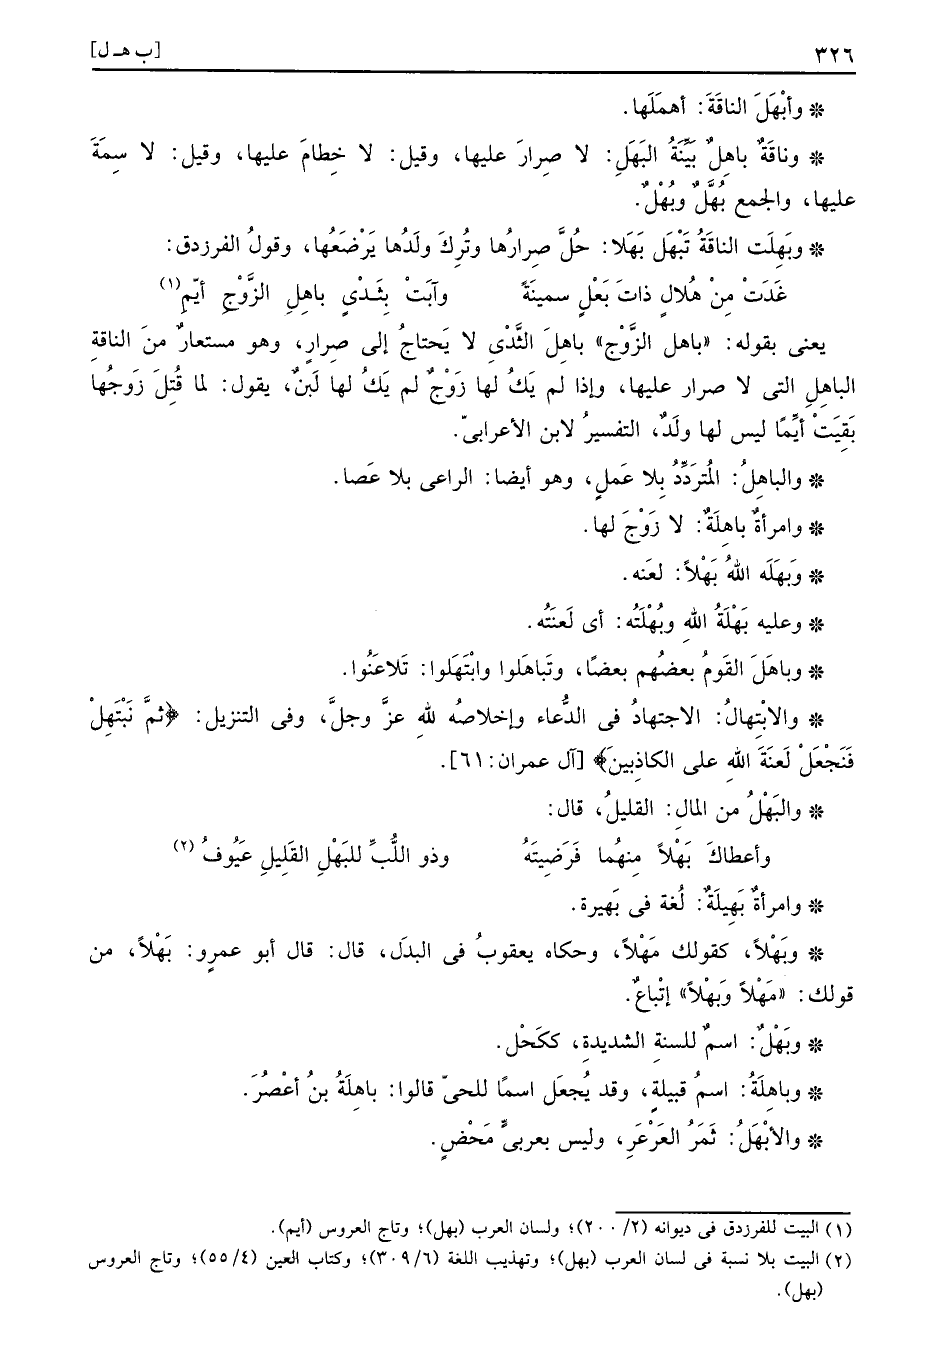 ٣٢٦ [ب هـ ل]
❊ وأبْهَلَ الناقَةَ: أهمَلَها.
❊ وناقَةٌ باهِلٌ بَيِّنَةُ البَهَلِ: لا صِرارَ عليها، وقيل: لا خِطامَ عليها، وقيل: لا سِمَةَ
عليها، والجمع بُهَّلٌ وبُهْلٌ.
❊ وبَهِلَت الناقَةُ تَبْهَل بَهَلا: حُلَّ صِرارُها وتُرِكَ ولَدُها يَرْضَعُها، وقولُ الفرزدق:
غَدَتْ مِنْ هُلالٍ ذاتَ بَعْلٍ سمينَةً وآبَتْ بِثَدْىٍ باهِلِ الزَّوْجِ أيّمِ(١)
يعنى بقوله: «باهل الزَّوْج» باهِلَ الثَّدْىِ لا يَحتاجُ إلى صِرارٍ، وهو مستعارٌ منَ الناقةِ
الباهِلِ التى لا صرار عليها، وإذا لم يَكُ لها زَوْجٌ لم يَكُ لها لَبنٌ، يقول: لما قُتِلَ زَوجُها
بَقِيَتْ أيِّمًا ليس لها ولَدٌ، التفسيرُ لابن الأعرابىّ.
❊ والباهِلُ: المُتَردِّدُ بِلا عَملٍ، وهو أيضا: الراعى بلا عَصا.
❊ وامرأةٌ باهِلَةٌ: لا زَوْجَ لها.
❊ وَبَهلَه اللهُ بَهْلاً: لعَنه.
❊ وعليه بَهْلَةُ اللهِ وبُهْلَتُه: أى لَعنَتُه.
❊ وباهَلَ القَومُ بعضُهم بعضًا، وتَباهَلوا وابْتَهَلوا: تَلاعَنُوا.
❊ والابْتِهالُ: الاجتهادُ فى الدُّعاء وإخلاصُه للهِ عزَّ وجلَّ، وفى التنزيل: ﴿ثمَّ نَبْتَهِلْ
فَنَجْعَلْ لَعنَةَ اللهِ على الكاذِبينَ﴾ [آل عمران: ٦١].
❊ والبَهْلُ من المالِ: القليلُ، قال:
وأعطاكَ بَهْلاً مِنهُما فَرَضِيتَهُ وذو اللُّبِّ للبَهْلِ القَليلِ عَيُوفُ (٢)
❊ وامرأةٌ بَهِيلَةٌ: لُغة فى بَهيرة.
❊ وبَهْلاً، كقولك مَهْلاً، وحكاه يعقوبُ فى البدَل، قال: قال أبو عمرو: بَهْلاً، من
قولك: «مَهْلاً وَبَهْلاً» إتْباعٌ.
❊ وبَهْلٌ: اسمٌ للسنةِ الشديدة، ككَحْل.
❊ وباهلَةُ: اسمُ قبيلةٍ، وقد يُجعَل اسمًا للحىّ قالوا: باهِلَةُ بنُ أعْصُرَ.
❊ والأبْهَلُ: ثَمَرُ العَرْعَرِ، وليس بعربىٍّ مَحْضٍ.
(١) البيت للفرزدق فى ديوانه (٢/ ٢٠٠)؛ ولسان العرب (بهل)؛ وتاج العروس (أيم).
(٢) البيت بلا نسبة فى لسان العرب (بهل)؛ وتهذيب اللغة (٦/ ٣٠٩)؛ وكتاب العين (٤/ ٥٥)؛ وتاج العروس
(بهل).